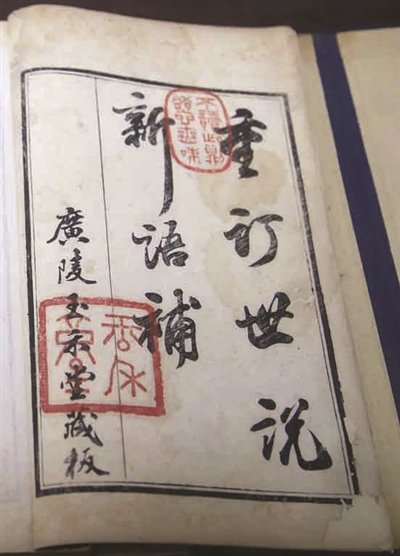 重訂世說
新語補
廣陵玉禾堂藏板